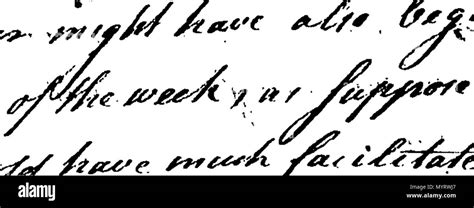 might have also beg
of the week, as suppose
ld have much facilitate
alamy
Image ID: MYRWJ7
www.alamy.com